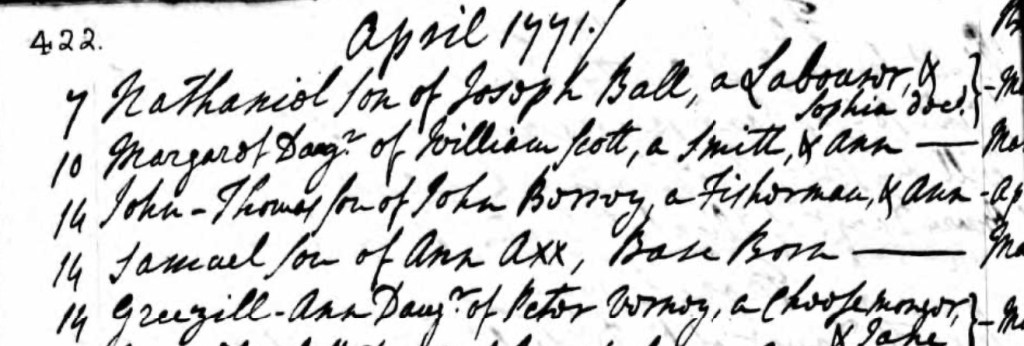 422. April 1771./
7 Nathaniel Son of Joseph Ball, a Labourer, & } - Ma
Sophia decd.
10 Margaret Daugr. of William Scott, a Smith, & Ann — Ma
14 John-Thomas Son of John Borroy, a Fisherman, & Ann - Ap
14 Samuel Son of Ann Axx, Base Born — Ma
14 Ann Daugr. of Peter Vernoy, a Cheesemonger, } - Ma
& Jane